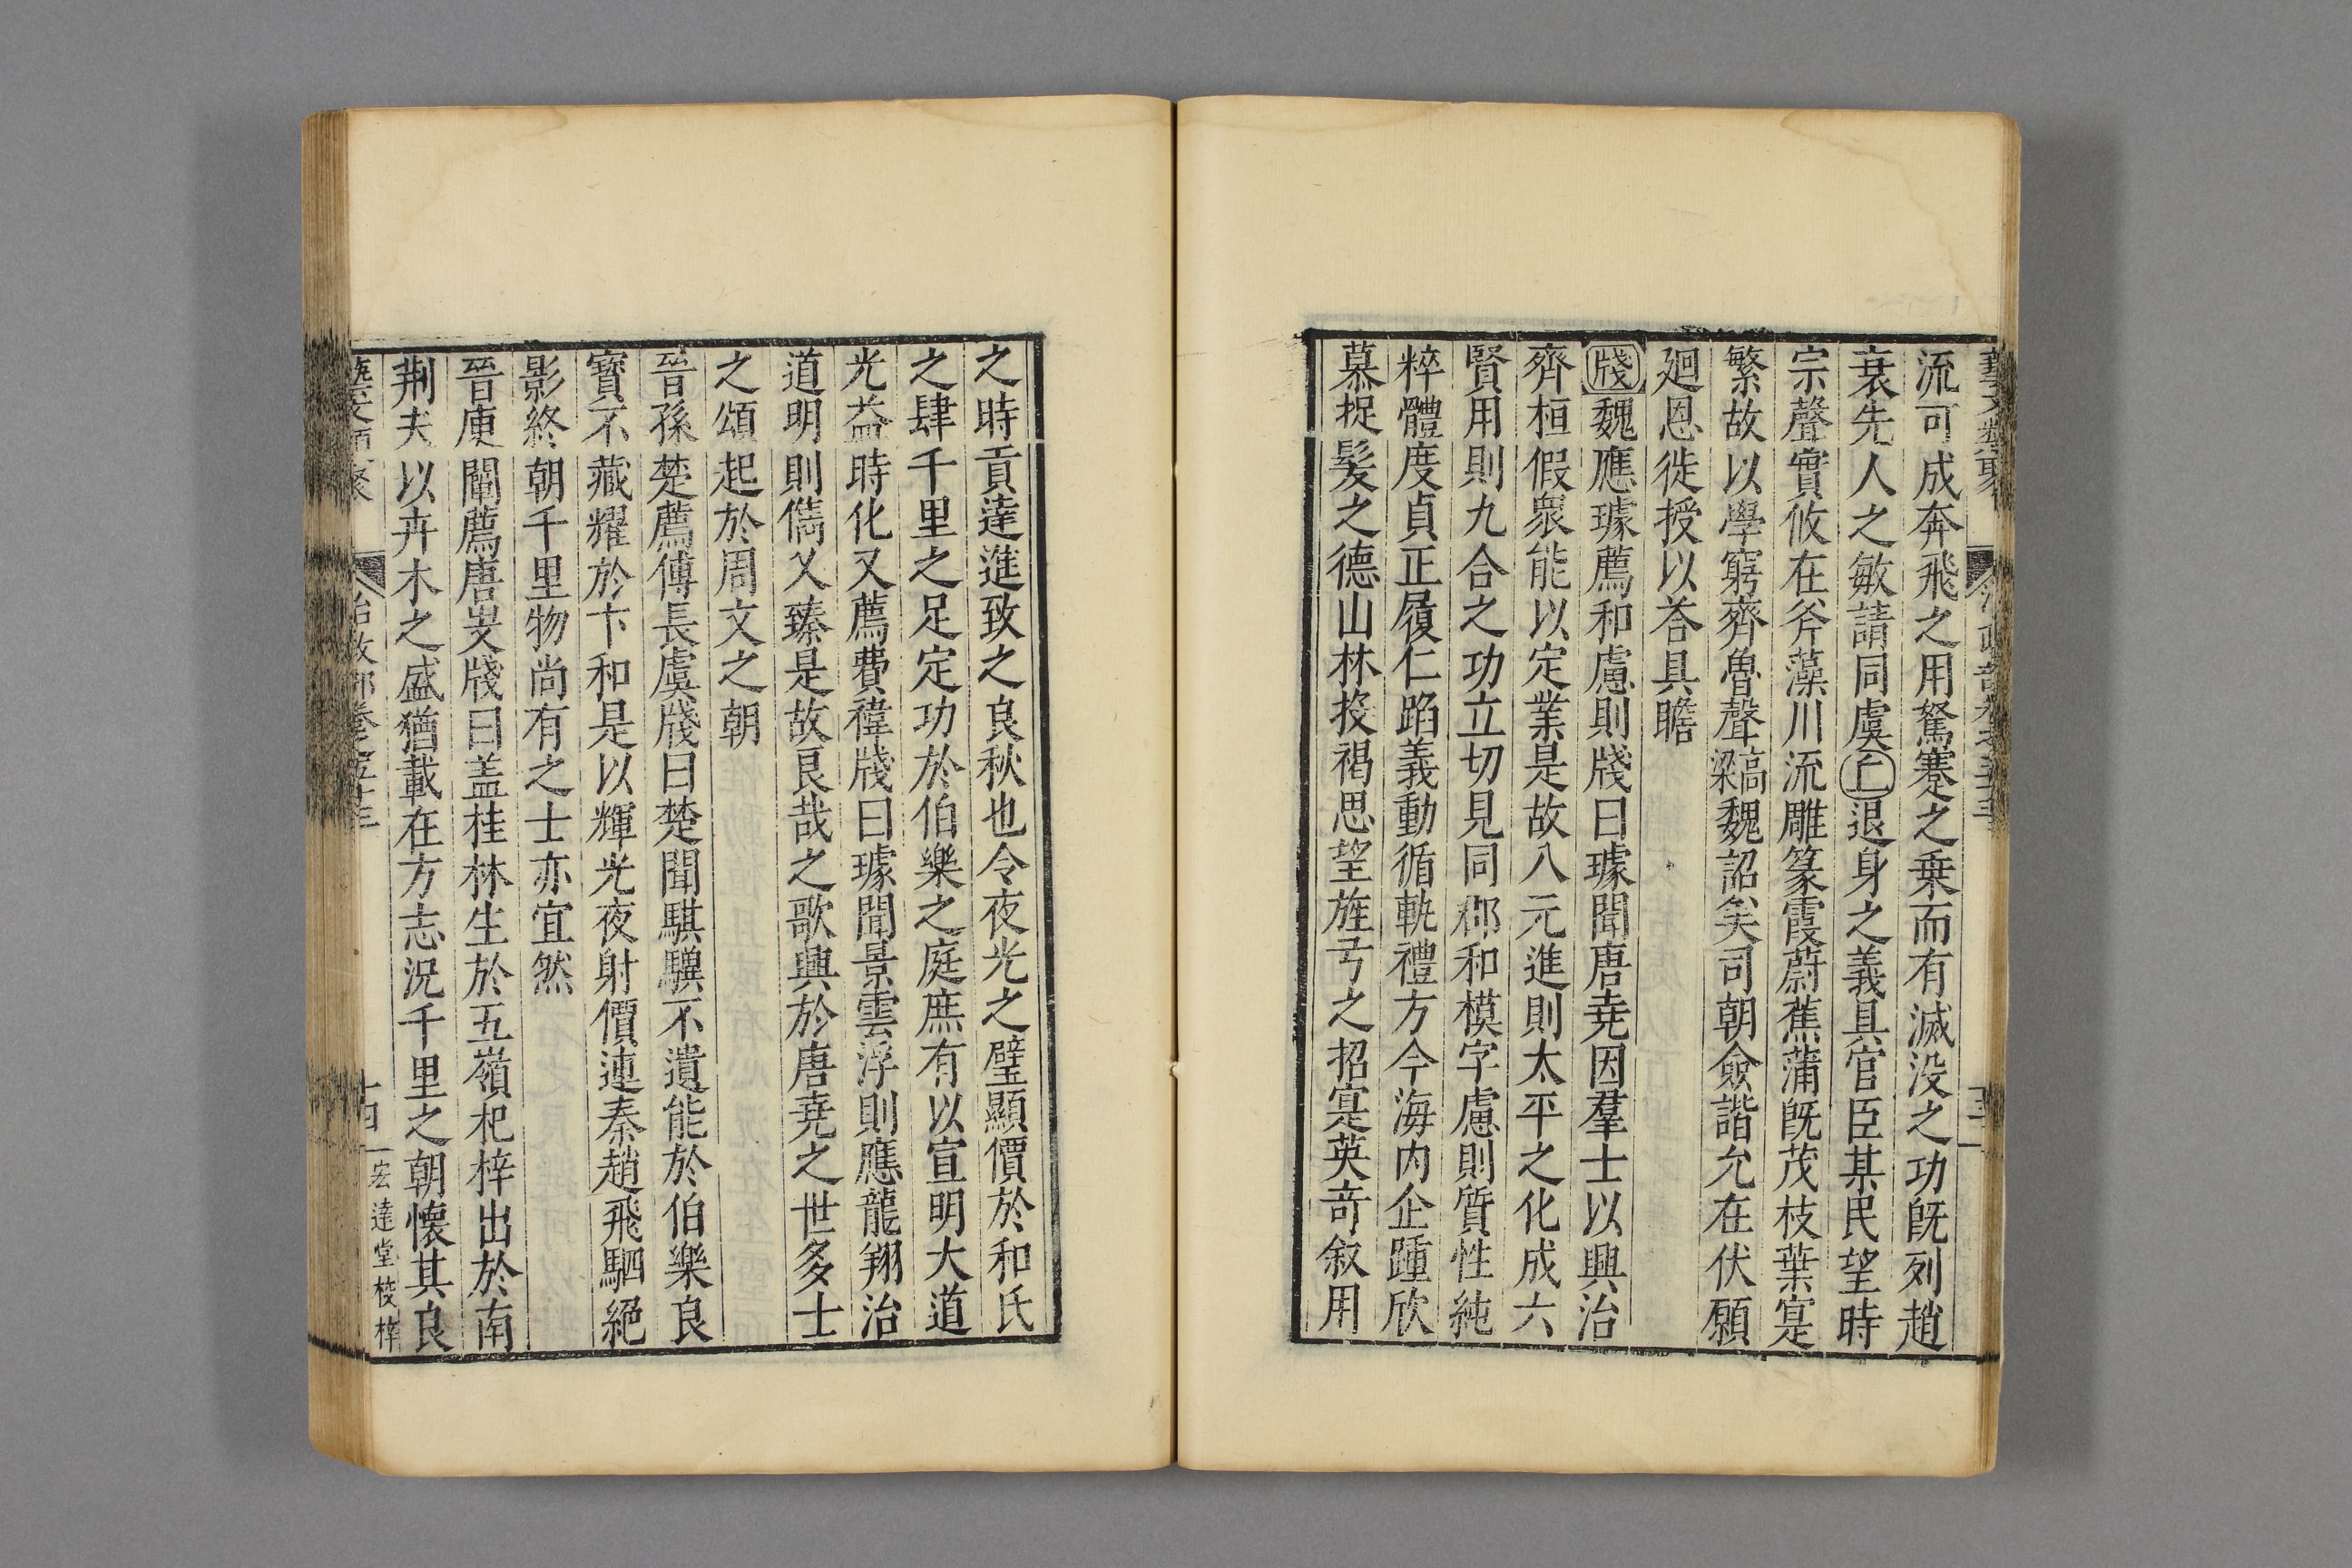 流可成奔飛之用駑蹇之乗而有滅没之功旣列趙
衰先人之敏請同虞丘退身之義具官臣某民望時
宗聲實攸在斧藻川流雕篆霞蔚蕉蒲旣茂枝葉寔
繁故以學窮齊魯聲高梁魏詔矣司朝僉諧允在伏願
廻恩徙授以荅具瞻
牋魏應璩薦和慮則牋曰璩聞唐尭因羣士以興治
齊桓假衆能以定業是故八元進則太平之化成六
賢用則九合之功立切見同郡和模字慮則質性純
粹體度貞正履仁蹈義動循軌禮方今海内企踵欣
慕捉髮之德山林投褐思望旌弓之招寔英竒叙用
之時貢達進致之良秋也令夜光之璧顯價於和氏
之肆千里之足定功於伯樂之庭庶有以宣明大道
光益時化又薦費禕牋曰璩聞景雲浮則應龍翔治
道明則儁乂臻是故良哉之歌興於唐尭之世多士
之頌起於周文之朝
晉孫楚薦傅長虞牋曰楚聞騏驥不遺能於伯樂良
寳不藏耀於卞和是以輝光夜射價連秦趙飛駟絕
影終朝千里物尚有之士亦宜然
晉庾闡薦唐叟牋曰盖桂林生於五嶺杞梓出於南
荆夫以卉木之盛猶載在方志況千里之朝懷其良
十四 宏達堂校梓